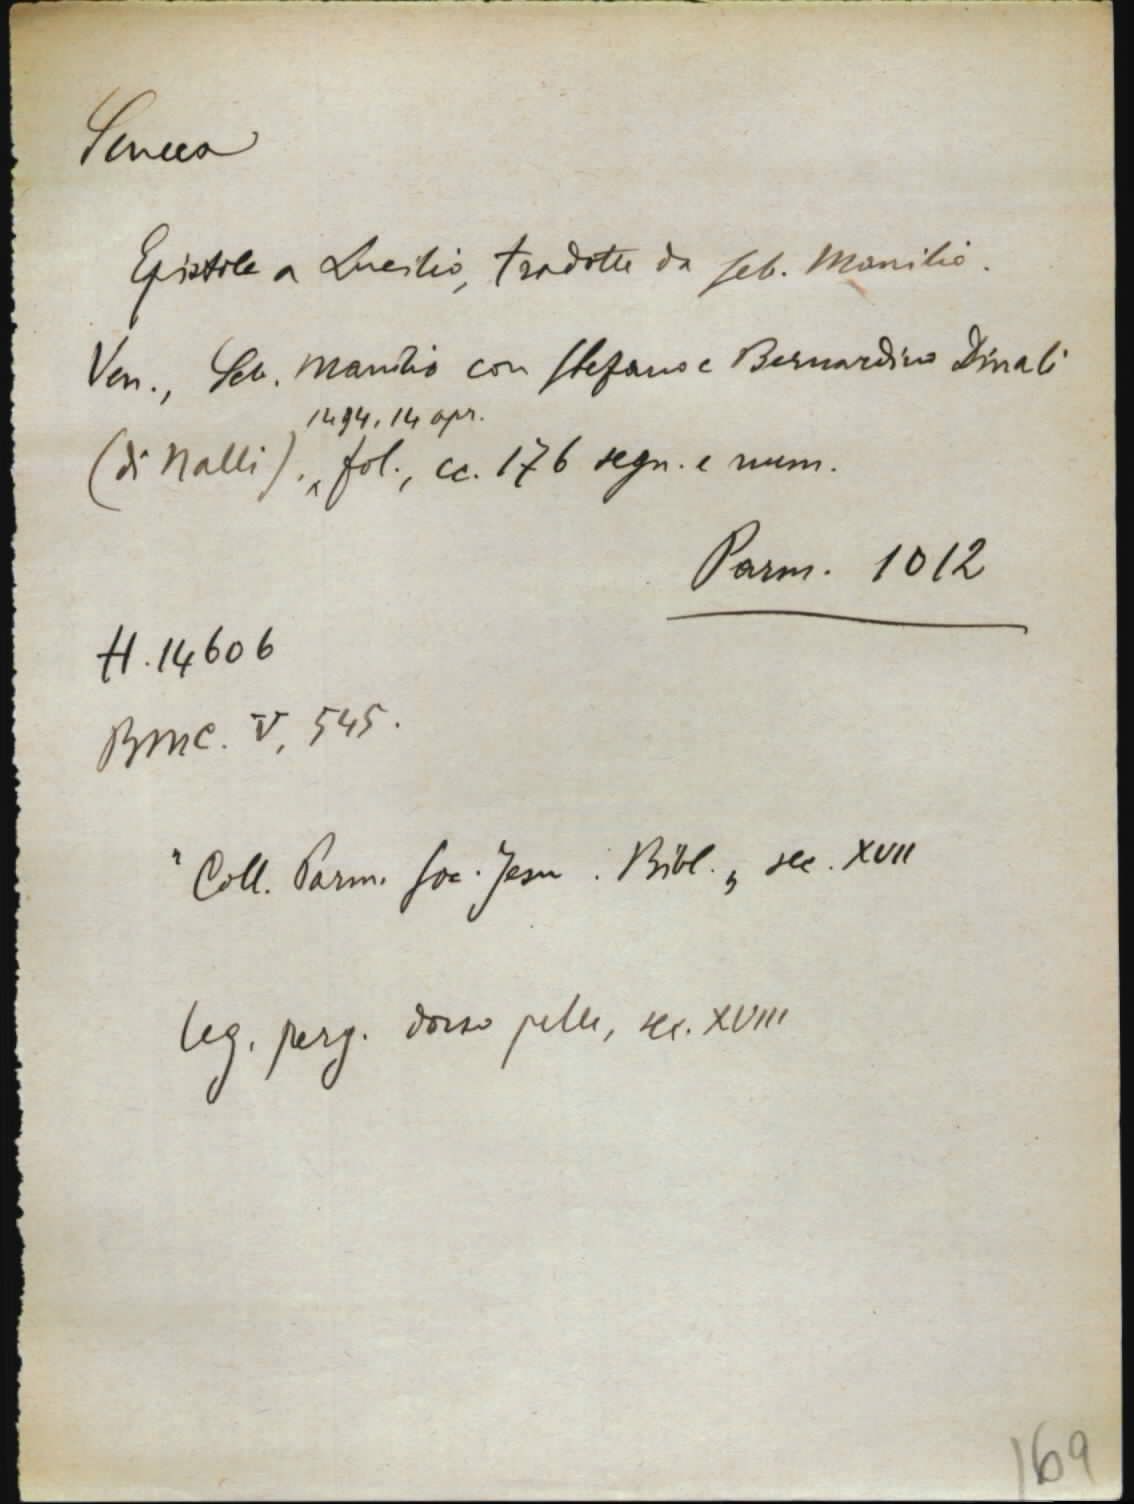 Seneca
Epistole a Lucilio, tradotte da Seb. Manilio.
Ven., Seb. Manilio con Stefano e Bernardino Dinali
1494, 14 apr.
(di Nalli). ‸ fol., cc. 176 segn. e num.
Parm. 1012
H. 14606
BMC. V, 545.
"Coll. Parm. Soc. Jesu. Bibl.„ sec. XVII
Leg. perg. dorso pelle, sec. XVIII
169